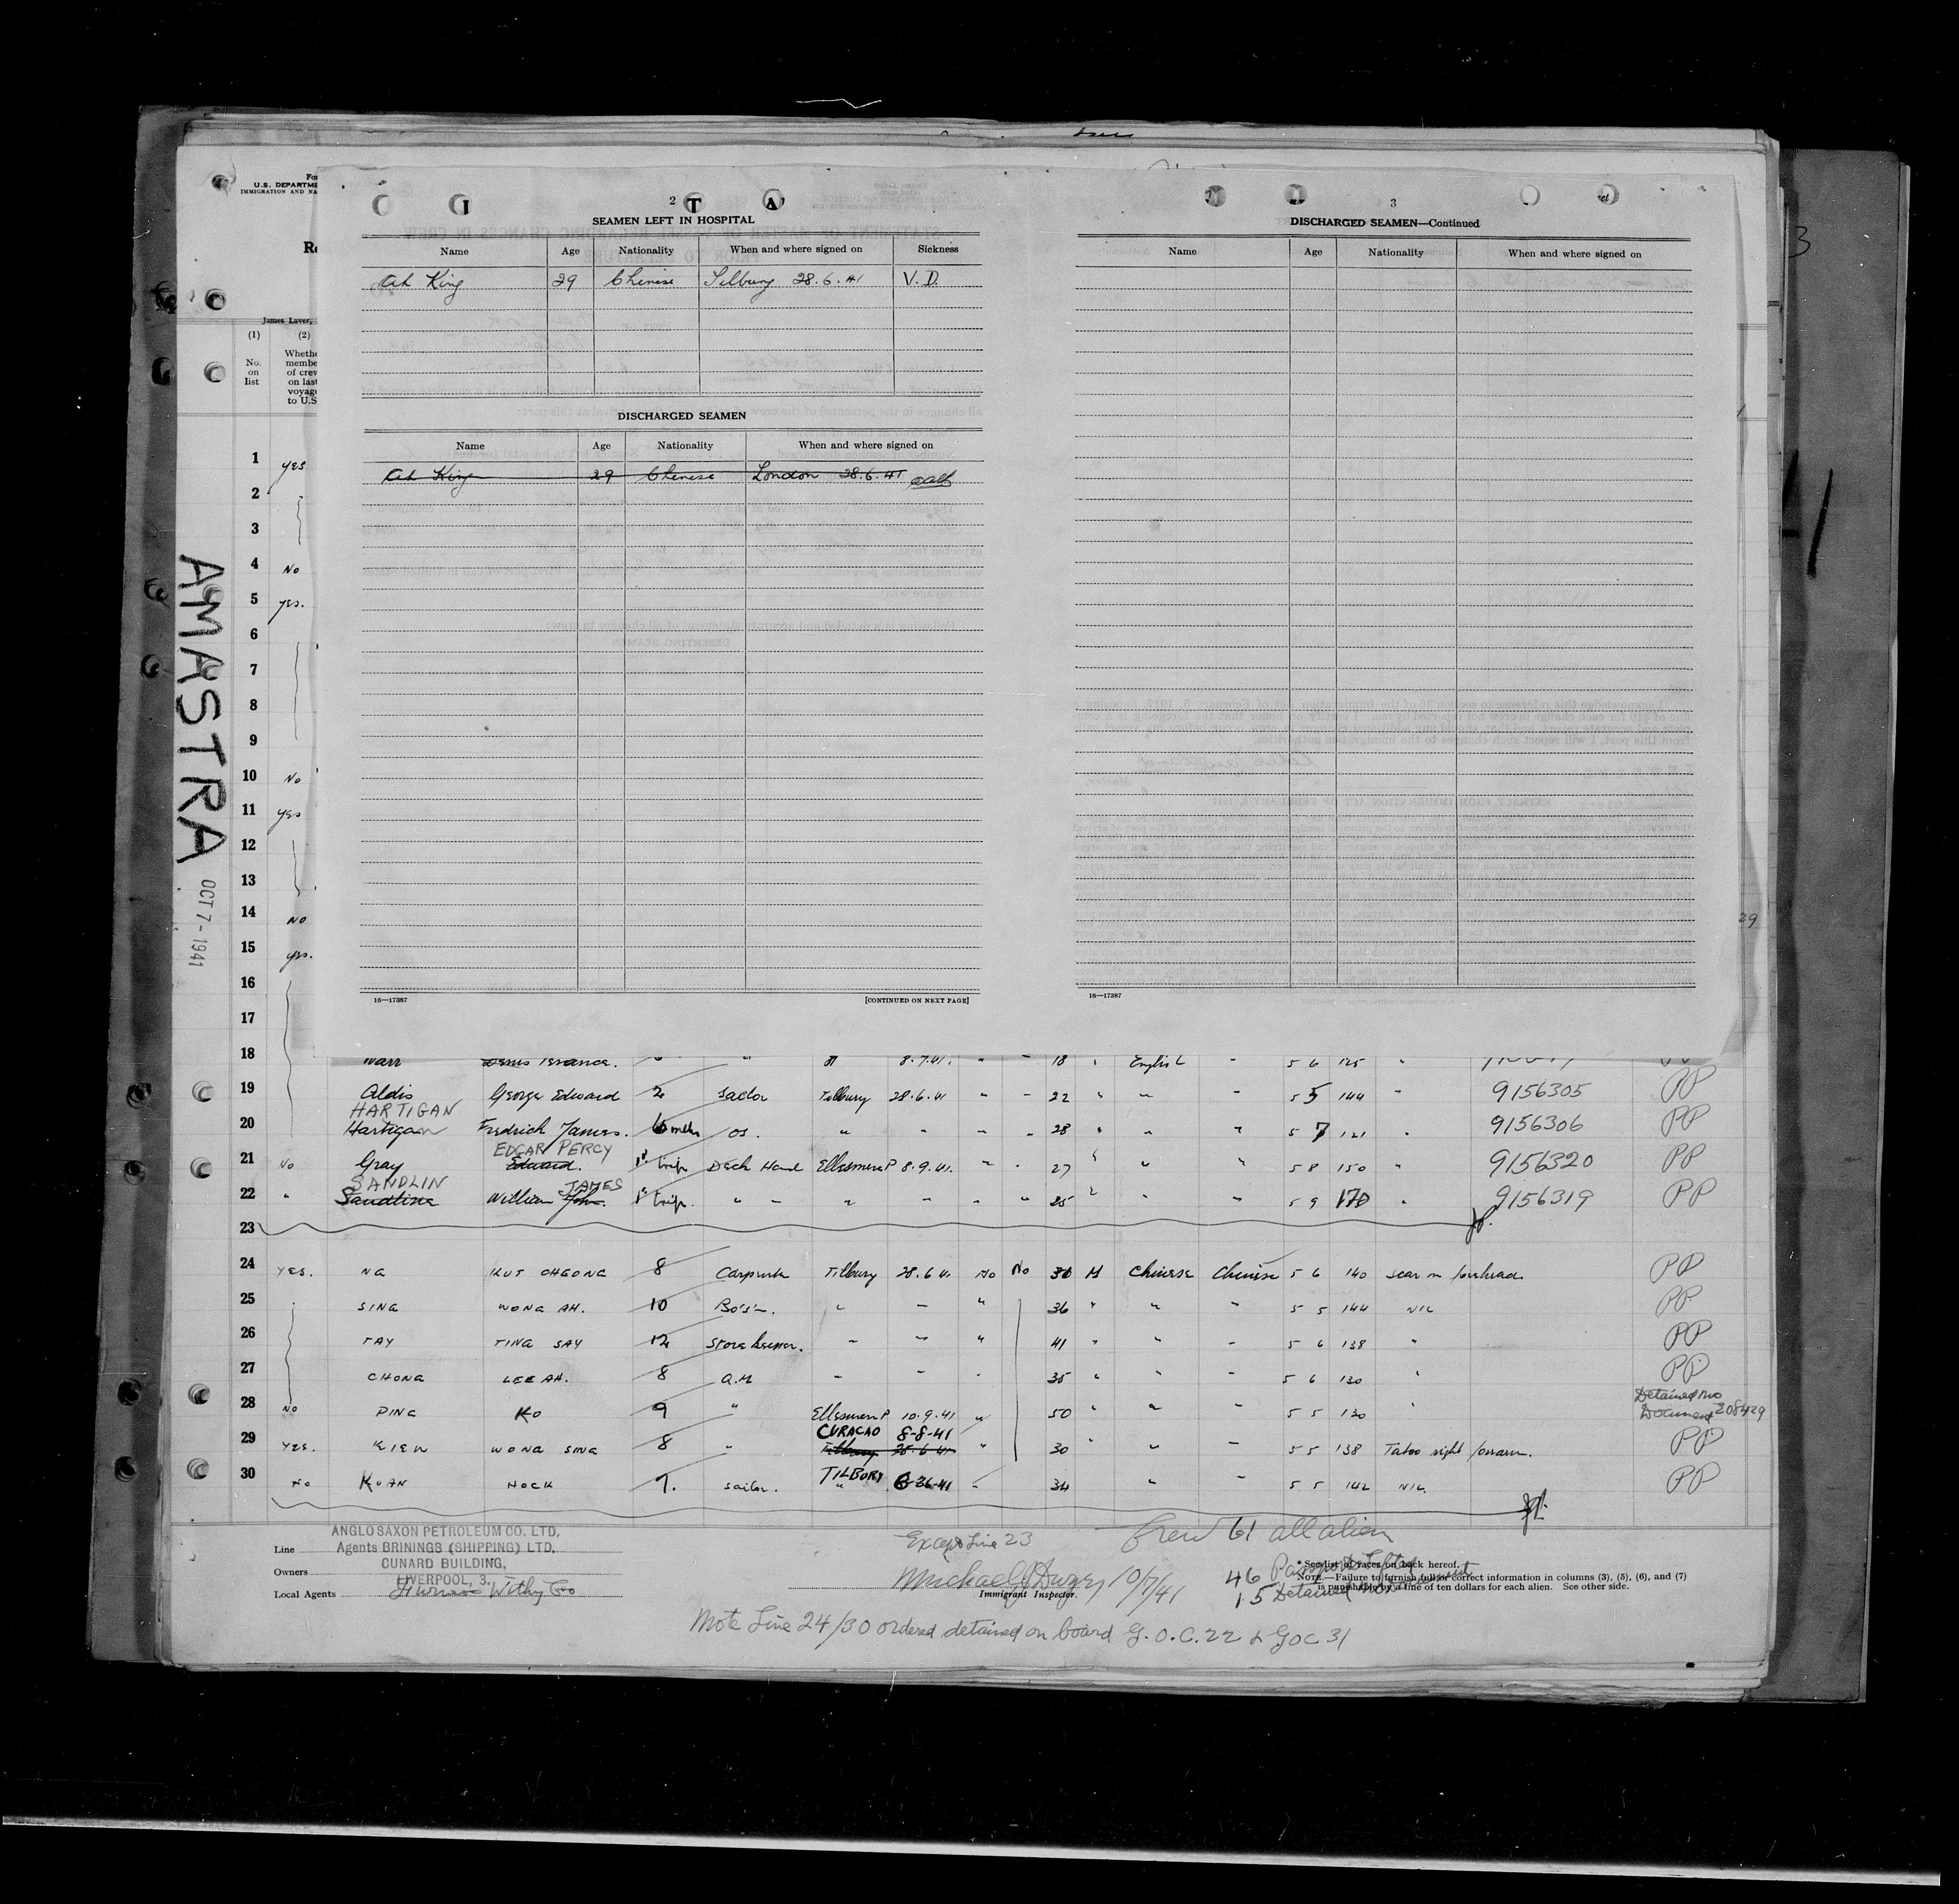 For
U.S. DEPARTME
IMMIGRATION AND NA
Re
James Laver,
(1) (2)
No. on list
Whethe
membe
of crew
on last
voyage
to U.S
AMASTRA
OCT 7 - 1941
2
SEAMEN LEFT IN HOSPITAL
Name Age Nationality When and where signed on Sickness
Ah King 29 Chinese Tilbury 28.6.41 V.D.
DISCHARGED SEAMEN
Name Age Nationality When and where signed on
Ah King 29 Chinese London 28.6.41
16—17387 [CONTINUED ON NEXT PAGE]
3
DISCHARGED SEAMEN—Continued
Name Age Nationality When and where signed on
16—17387
3
29
1 yes
2
3
4 No
5 yes.
6
7
8
9
10 No
11 yes
12
13
14 No
15 yes.
16
17
18 Warr 8.7.41. " - 18 " English " 5 6 125 "
19 Aldis George Edward 2 Sailor Tilbury 28.6.41 " - 22 " " " 5 5 144 " 9156305 PP
HARTIGAN
20 Hartigan Fredrich James. 6 mths OS. " " " - 28 " " " 5 7 121 " 9156306 PP
EDGAR PERCY
21 No Gray Edward. 1st trip Deck Hand Ellesmere P 8.9.41. " - 27 " " " 5 8 150 " 9156320 PP
SANDLIN JAMES
22 " Sandline William John. 1st trip. " " " " " " 25 " " " 5 9 170 " 9156319 PP
23
24 YES. NG KUT CHEONG 8 Carpenter Tilbury 28.6.41 No No 30 M Chinese Chinese 5 6 140 Scar on forehead PP
25 SING WONG AH. 10 Bo's'n. " " " 36 " " " 5 5 144 NIL PP
26 TAY TING SAY 12 Storekeeper. " " " 41 " " " 5 6 138 " PP
27 CHONG LEE AH. 8 Q.M " " " 35 " " " 5 6 130 " PP
28 NO PING KO 9 " Ellesmere P 10.9.41 " 50 " " " 5 5 130 " Detained no Document 208429
CURACAO 8-8-41
29 YES. KIEW WONG SING 8 " Tilbury 28.6.41 " 30 " " 5 5 138 Tatoo right forearm. PP
TILBURY
30 No KUAN HOCK 7. Sailor. " 6-26-41 " 34 " " 5 5 142 NIL. PP
Line ANGLO SAXON PETROLEUM CO. LTD,
Agents BRININGS (SHIPPING) LTD.
Owners CUNARD BUILDING,
LIVERPOOL, 3.
Local Agents Furness Withy Co
Except Line 23
Crew 61 all alien
Michael J Dwyer 10/7/41
Immigrant Inspector.
46 Passports
15 Detained no document
* See list of races on back hereof.
NOTE.—Failure to furnish full or correct information in columns (3), (5), (6), and (7)
is punishable by a fine of ten dollars for each alien. See other side.
Note Line 24/30 ordered detained on board G.O.C. 22 & GOC 31